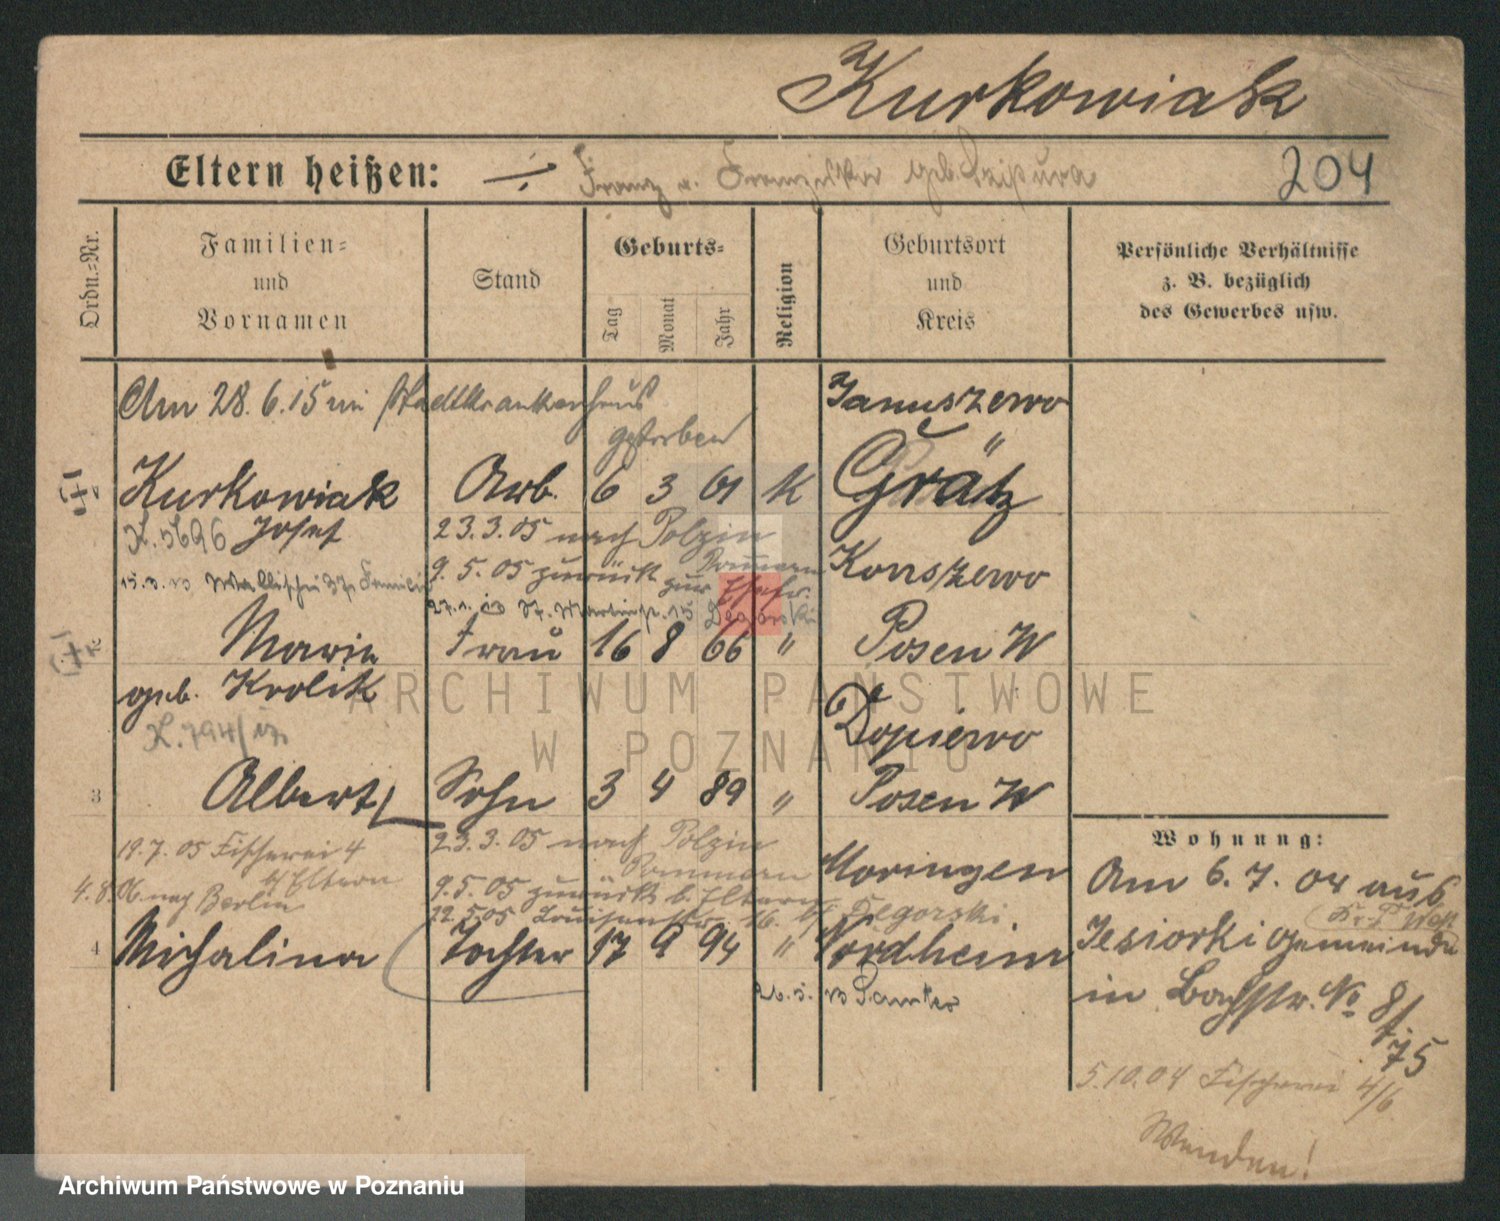 Kurkowiak
Eltern heißen: ÷ Franz u. Franziska geb. Szipura
204
Ordn.-Nr.
Familien- und Vornamen
Stand
Geburts-
Tag Monat Jahr
Religion
Geburtsort und Kreis
Persönliche Verhältnisse z. B. bezüglich des Gewerbes usw.
Am 28. 6. 15 im Stadtkrankenhaus
gestorben
Januszewo
"
Kurkowiak Arb. 6 3 61 K Grätz
K. 5696 Josef 23.3.05 nach Polzin
Pommern
15.3.13 Wallischei 37 Familie 9. 5. 05 zurück zur Ehefr. Konszewo
27.1.13 St. Martinstr. 15 Degorski
Marie Frau 16 8 66 " Posen W
geb. Krolik
K. 794/17.
Dopiewo
3 Albert Sohn 3 4 89 " Posen W
19.7.05 Fischerei 4 23. 3. 05 nach Polzin
b/ Eltern Pommern
4.8.06 nach Berlin 9.5.05 zurück b. Eltern
22.5.05 Louisenstr. 16. b/ Degorski.
Moringen
4 Michalina Tochter 17 9 94 " Nordheim
26.5.13 Samter
Wohnung:
Am 6. 7. 04 aus
(Kr. P. West)
Jesiorki Gemeinde
in Bachstr. No 8/
b. 75
5.10.04 Fischerei 4/6
Wenden!
ARCHIWUM PAŃSTWOWE
W POZNANIU
Archiwum Państwowe w Poznaniu